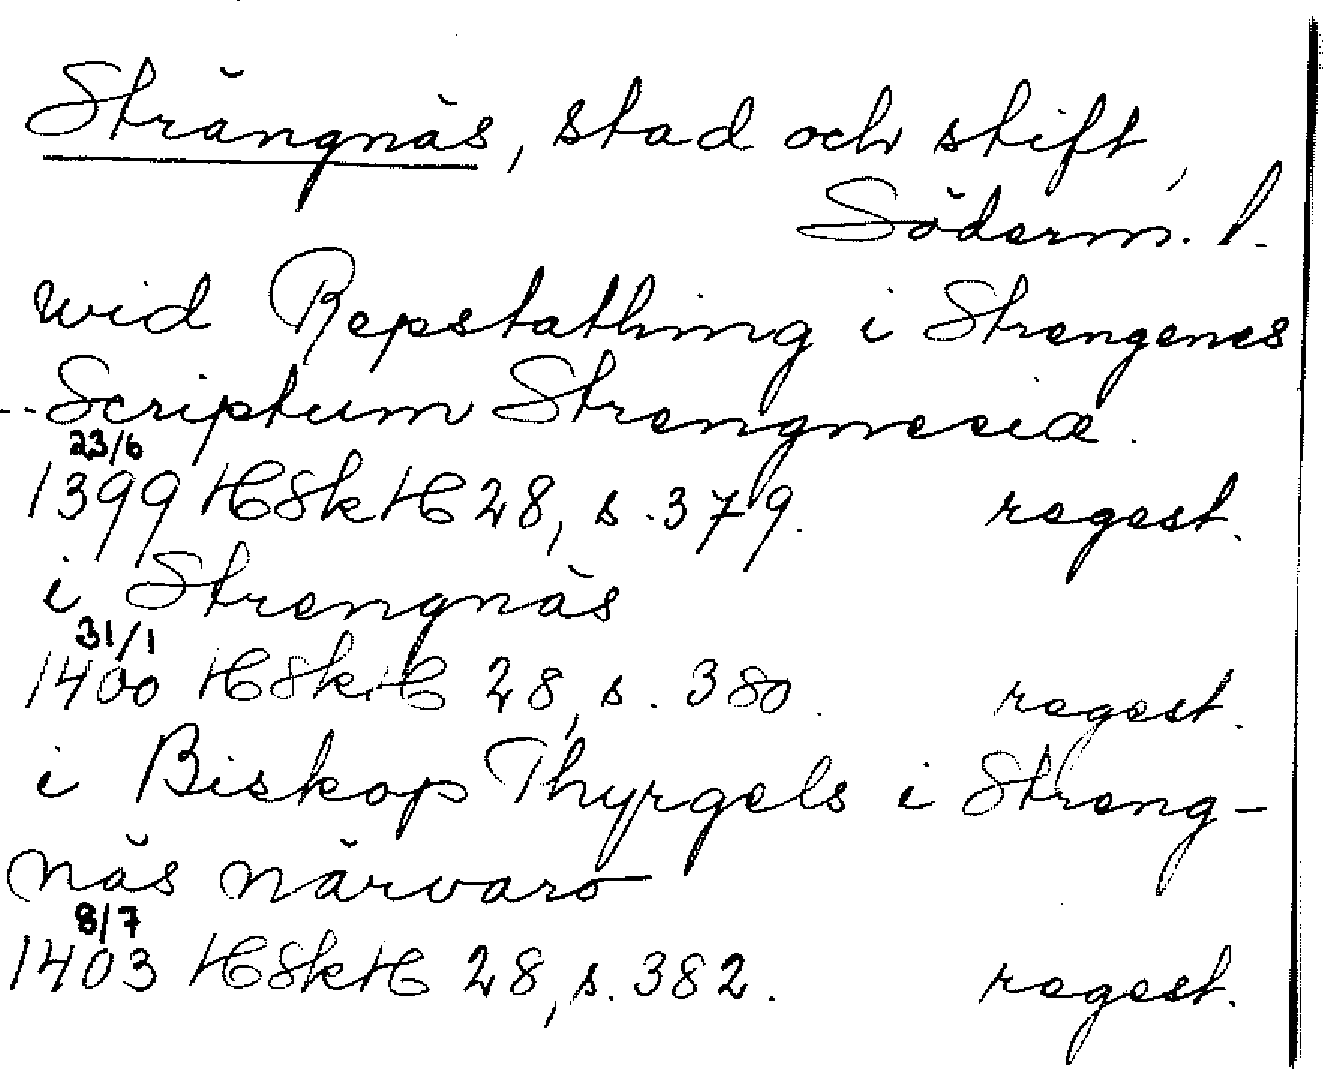 Strängnäs, stad och stift,
Söderm. l.
wid Repstathing i Strengenes
-- Scriptum Strengnesiæ.
23/6
1399 HSkH 28, s. 379. regest.
i Strengnäs
31/1
1400 HSkH 28, s. 380. regest.
i Biskop Thyrgels i Streng-
näs närvaro
8/7
1403 HSkH 28, s. 382. regest.